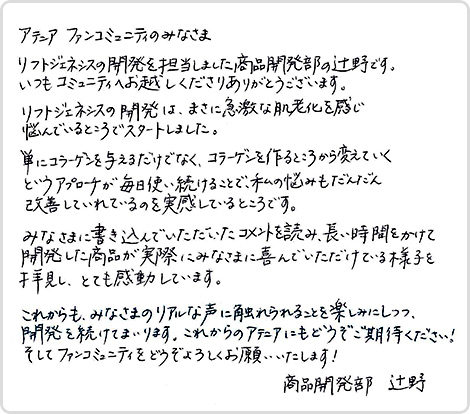 アテニア ファンコミュニティのみなさま
リフトジェネシスの開発を担当しました商品開発部の辻野です。
いつもコミュニティへお越しくださりありがとうございます。
リフトジェネシスの開発は、まさに急激な肌老化を感じ
悩んでいるところでスタートしました。
単にコラーゲンを与えるだけでなく、コラーゲンを作るところから変えていく
というアプローチが毎日使い続けることで、私の悩みもだんだん
改善していれているのを実感しているところです。
みなさまに書き込んでいただいたコメントを読み、長い時間をかけて
開発した商品が実際にみなさまに喜んでいただけている様子を
拝見し、とても感動しています。
これからも、みなさまのリアルな声に触れられることを楽しみにしつつ、
開発を続けてまいります。これからのアテニアにもどうぞご期待ください!
そしてファンコミュニティをどうぞよろしくお願いいたします!
商品開発部 辻野